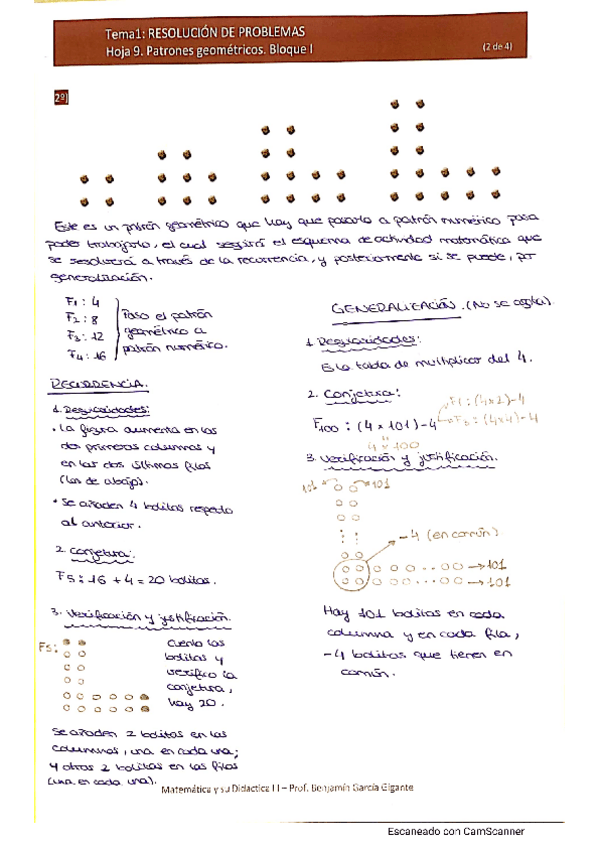 Tema1: RESOLUCIÓN DE PROBLEMAS
Hoja 9. Patrones geométricos. Bloque I
(2 de 4)
2º)
Este es un patrón geométrico que hay que pasarlo a patrón numérico para
poder trabajarlo, el cual seguirá el esquema de actividad matemática que
se resolverá a través de la recurrencia, y posteriormente si se puede, por
generalización.
F1: 4
F2: 8
F3: 12
F4: 16
Paso el patrón
geométrico a
patrón numérico.
RECURRENCIA.
1. Regularidades:
· La figura aumenta en las
dos primeras columnas y
en las dos últimas filas
(las de abajo).
· Se añaden 4 bolitas respecto
al anterior.
2. Conjetura:
F5: 16 + 4 = 20 bolitas.
3. Verificación y justificación.
F5:
Cuento las
bolitas y
verifico la
conjetura,
hay 20.
Se añaden 2 bolitas en las
columnas, una en cada una;
y otras 2 bolitas en las filas
(una en cada una).
GENERALIZACIÓN. (No se exigía).
1. Regularidades:
Es la tabla de multiplicar del 4.
2. Conjetura:
F100: (4 x 101) - 4
F1: (4x2)-4
(4x4)-4
4 x 100
3. Verificación y justificación.
101
101
-4 (en común)
→ 101
→ 101
Hay 101 bolitas en cada
columna y en cada fila,
-4 bolitas que tienen en
común.
Matemática y su Didáctica II – Prof. Benjamín García Gigante
Escaneado con CamScanner